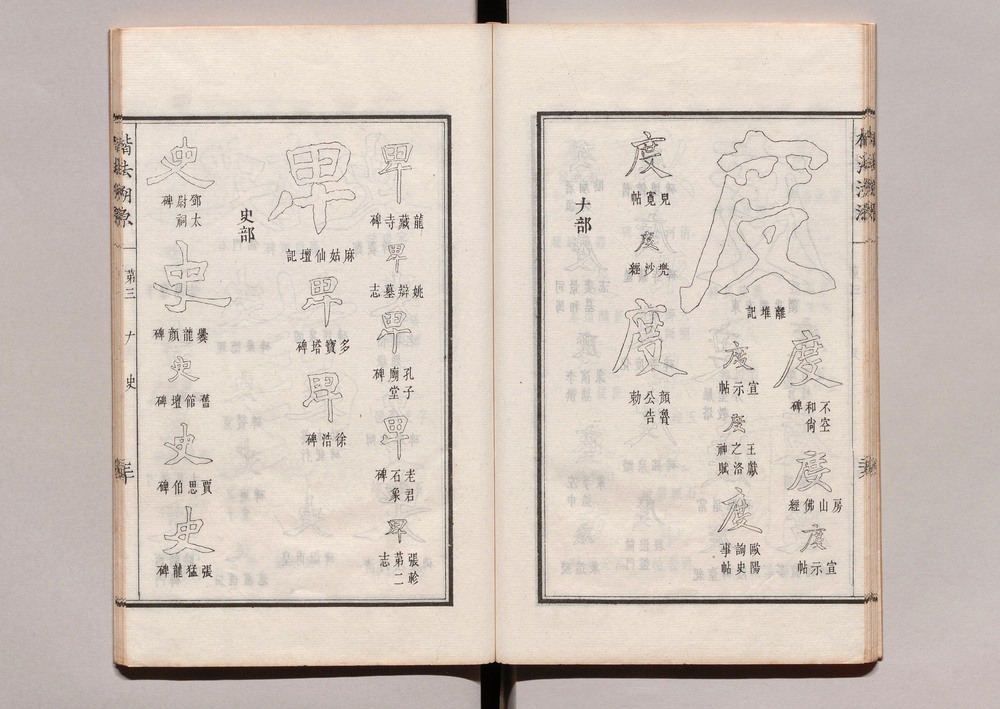 度
離堆記
度
不空和尚碑
度
房山佛經
度
宣示帖
度
宣示帖
度
王獻之洛神賦
度
歐陽詢史事帖
度
兒寬帖
度
兜沙經
度
顏魯公告勅
𠂇部
卑
龍藏寺碑
卑
姚辯墓志
卑
孔子廟堂碑
卑
老君石象碑
卑
張軫第二志
卑
麻姑仙壇記
卑
多寶塔碑
卑
徐浩碑
史部
史
鄧太尉祠碑
史
爨龍顏碑
史
舊館壇碑
史
賈思伯碑
史
張猛龍碑
楷法溯源
第三
𠂇
史